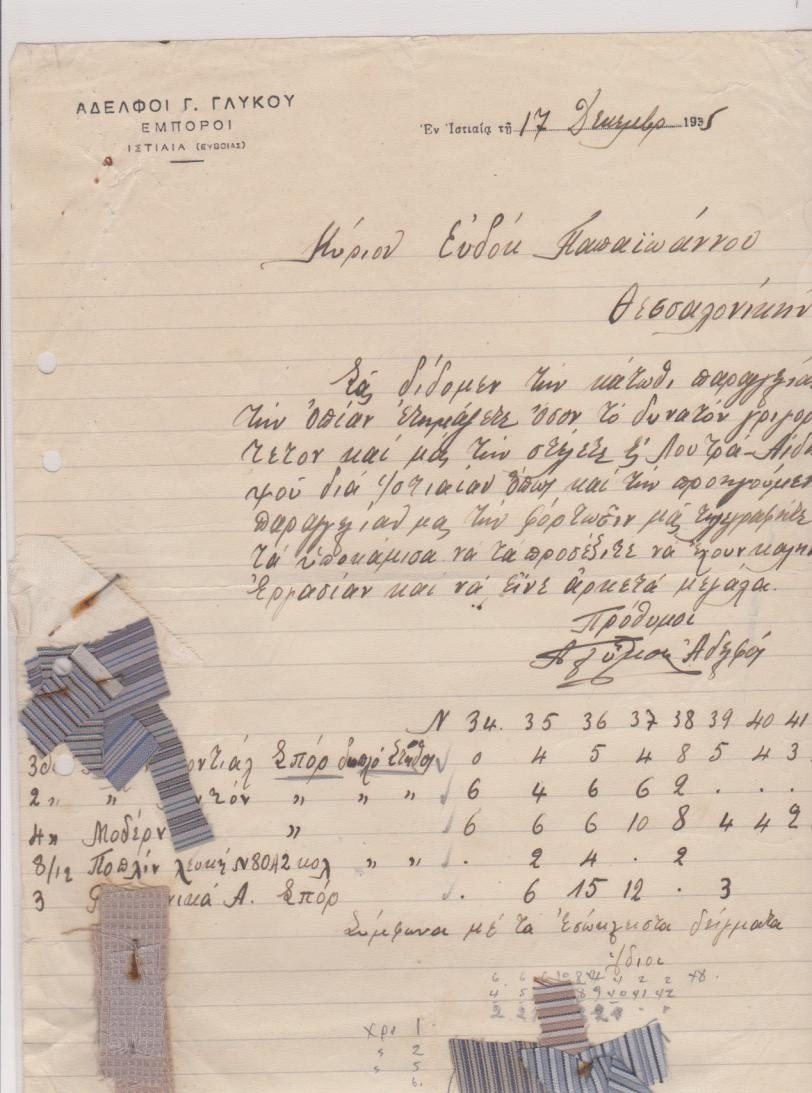 ΑΔΕΛΦΟΙ Γ. ΓΛΥΚΟΥ
ΕΜΠΟΡΟΙ
ΙΣΤΙΑΙΑ (ΕΥΒΟΙΑΣ)
Ἐν Ἱστιαίᾳ τῇ 17 Δεκεμβρ 1935
Κύριον Εὐδοκ Παπαϊωάννου
Θεσσαλονίκην
Σᾶς δίδομεν τὴν κάτωθι παραγγελία
τὴν ὁπίαν ἑτημάσετε ὅσον τὸ δυνατόν γρίγορ
τετον καί μᾶς τὴν στείλετε εἰ Λουτρά-Αἰδη
ψοῦ διά Ἰστιαίαν ὅπως καί τὴν προηγούμεν
παραγγελίαν μας τὴν φόρτωσιν μᾶς τηλεγραφῆτε
τά ὑποκάμισα νά τά προσέξετε νά ἔχουν καλην
Ἐργασίαν καί νά εἶνε ἀρκετά μεγάλα.
Πρόθυμοι
Ἀδελφοί
Ν 34. 35 36 37 38 39 40 41
Σπόρ διπλό στῆθος 0 4 5 4 8 5 4 3
2 " " " " " 6 4 6 6 2 . . .
4 " Μοδέρν " 6 6 6 10 8 4 4 2
8/12 Ποπλίν λευκή Ν 8042 κολ " " . 2 4 . 2
3 Α. Σπόρ . 6 15 12 . 3
Σύμφωνα μέ τα Ἐσώκλειστα δείγματα
Ἴδιοι
χρι 1
" 2
" 5
6.